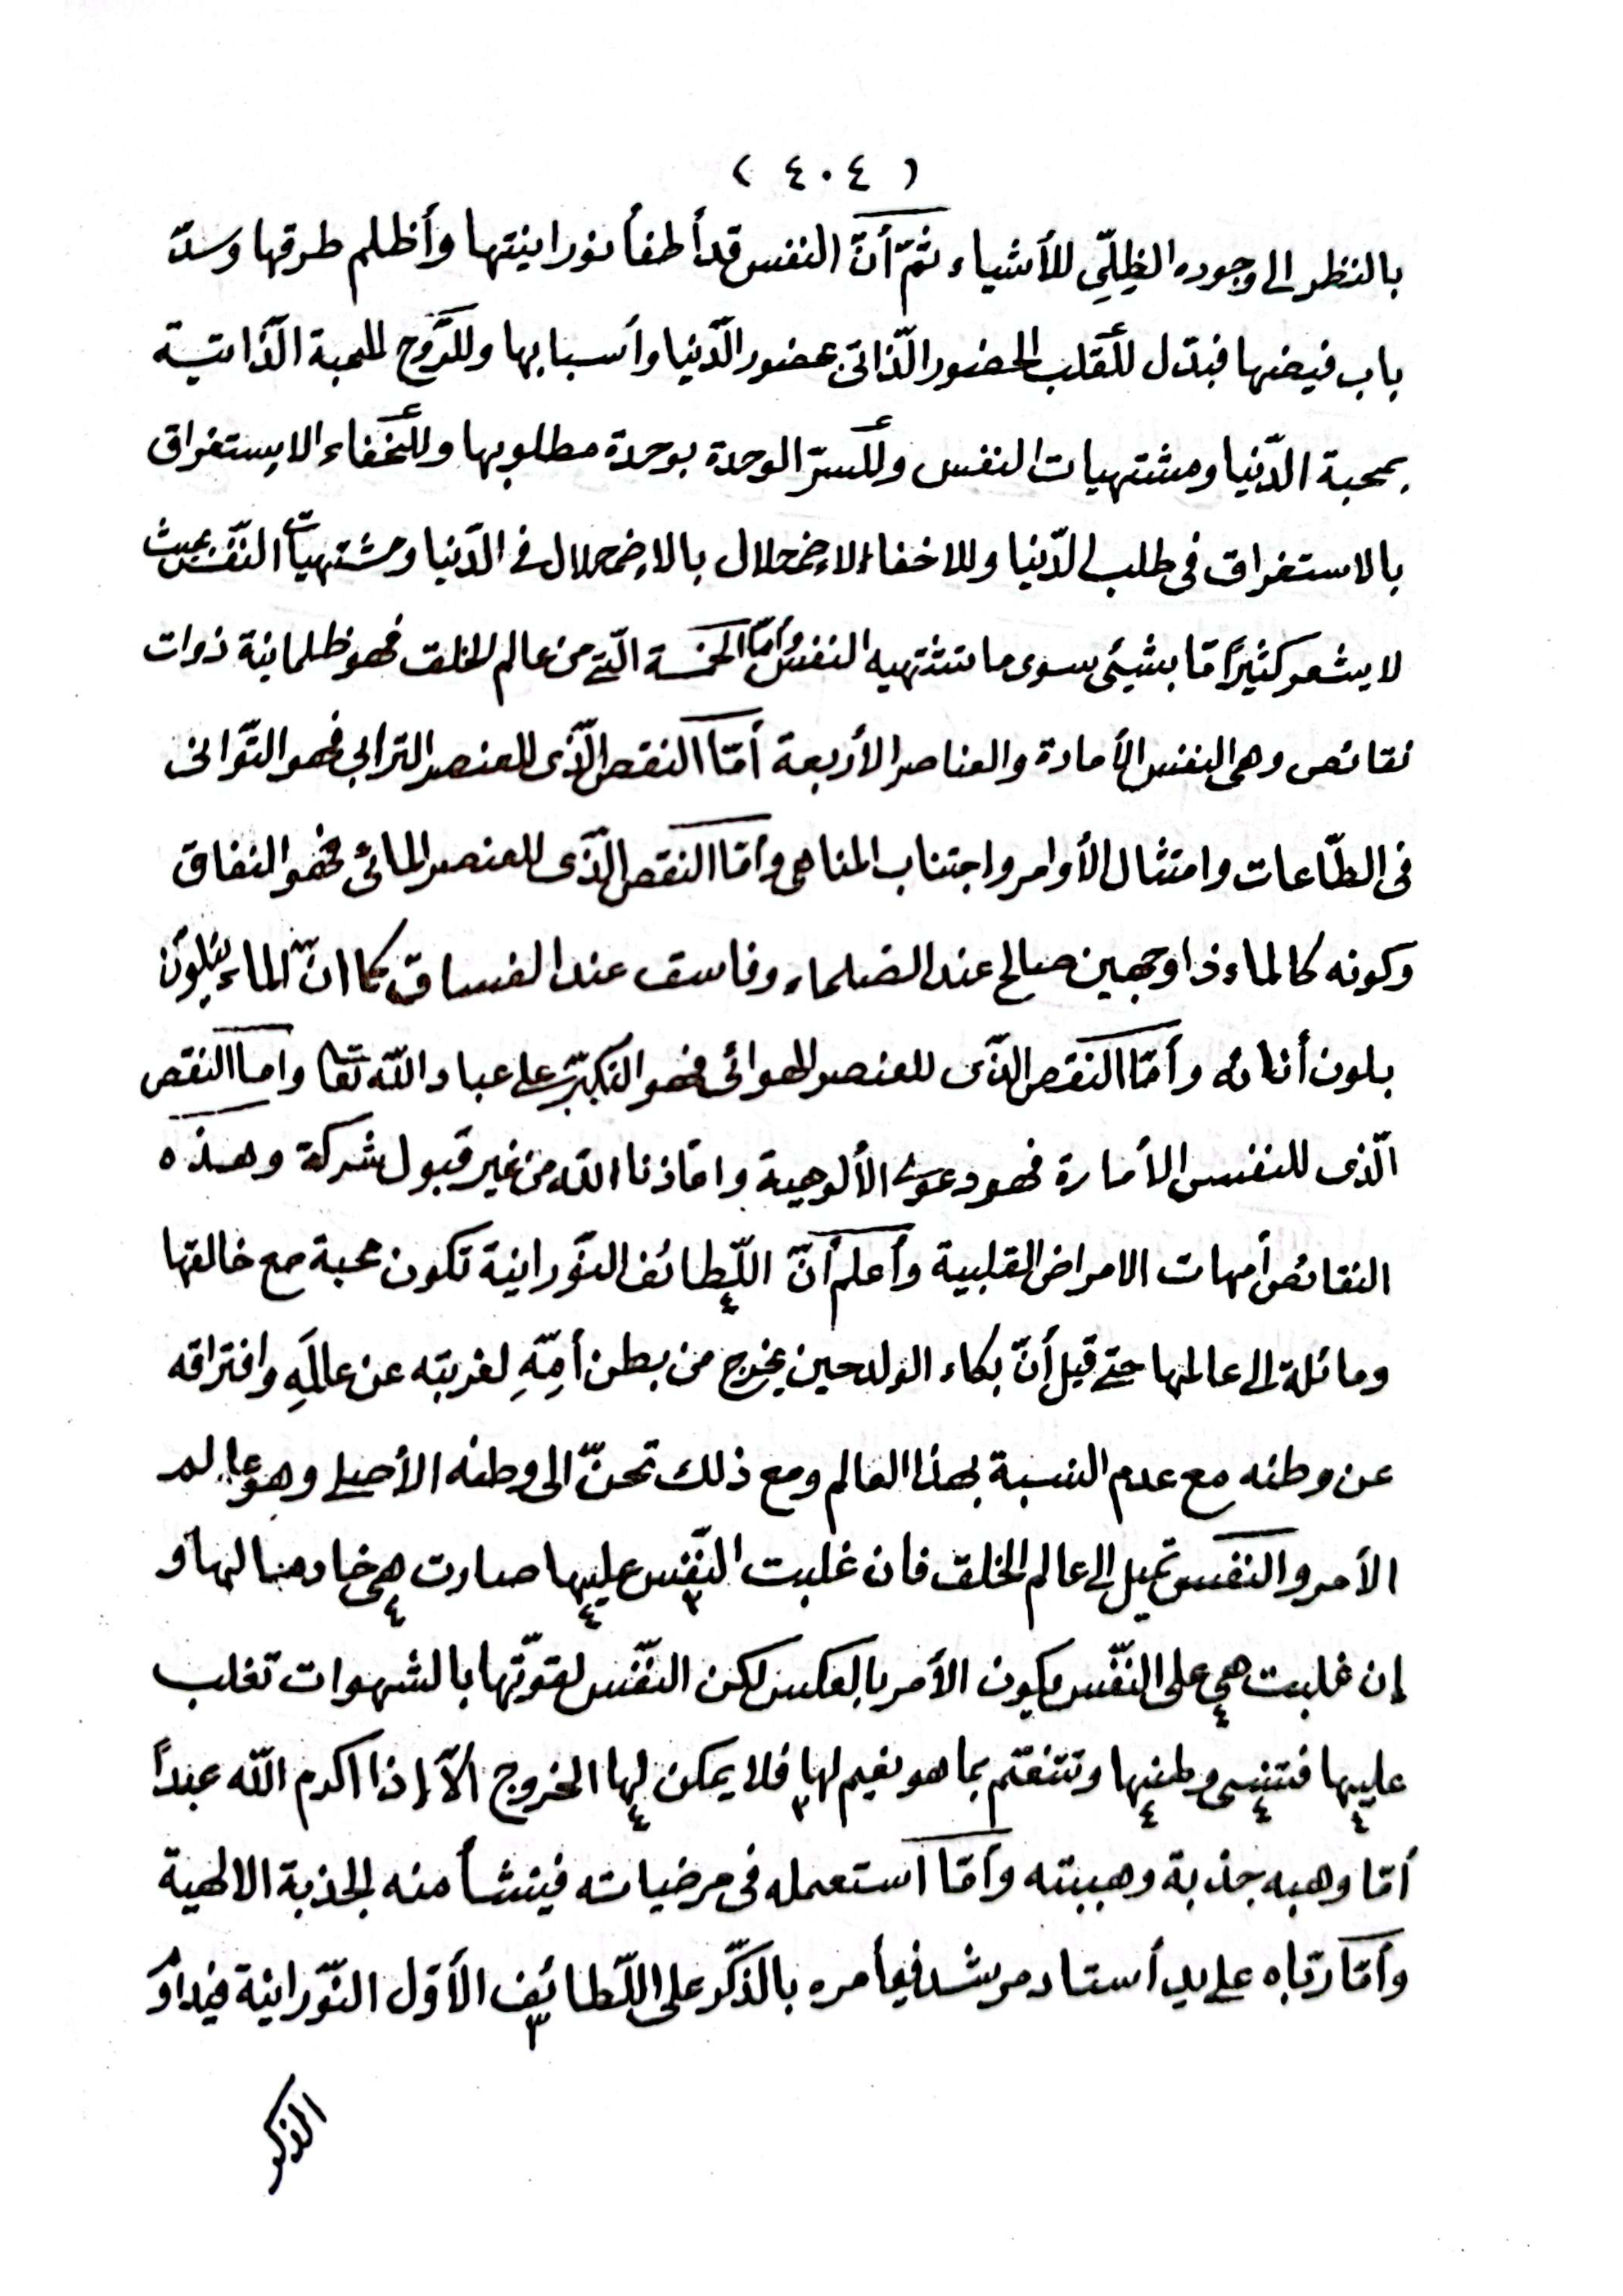 ( ٤٠٤ )
بالنظر الى وجوده الظِلِّي للأشياء ثمّ أنّ النفس قد أطفأ نورانيتها وأظلم طرقها وسدّ
باب فيضها فبدّل للقلب الحضور الذّاتى بحضور الدّنيا وأسبابها وللرّوح المحبة الذّاتية
بمحبة الدّنيا ومشتهيات النفس وللسرّ الوحدة بوحدة مطلوبها وللخفاء الاستغراق
بالاستغراق فى طلب الدّنيا وللاخفاء الاضمحلال بالاضمحلال فى الدّنيا ومشتهيات النّفس بحيث
لا يشعر كثيرًا مّا بشيئ سوى ما تشتهيه النفس وأمّا الخمسة الّتى من عالم الخلق فهو ظلمانية ذوات
نقائص وهى النفس الأمارة والعناصر الأربعة أمّا النقص الّذى للعنصر الترابى فهو التّوانى
فى الطّاعات وامتثال الأوامر واجتناب المناهى وأمّا النقص الذّى للعنصر المائى فهو النفاق
وكونه كالماء ذا وجهين صالح عند الصلحاء وفاسق عند الفساق كما انّ الماء يتلوّن
بلون أنائه وأمّا النقص الذّى للعنصر الهوائى فهو التكبّر على عباد اللّه تعا واما النقص
الّذى للنفس الأمارة فهو دعوى الألوهية واقاذنا اللّه من غير قبول شركة وهذه
النقائص أمهات الامراض القلبية وأعلم أنّ اللّطائف النّورانية تكون محبة مع خالقها
ومائلة الى عالمها حتى قيل أنّ بكاء الولد حين يخرج من بطن أمّهِ لغربته عن عالَمهِ وافتراقه
عن وطنه مع عدم النسبة بهذا العالم ومع ذلك تحنّ الى وطنه الأصلى وهو عالم
الأمر والنفس تميل الى عالم الخلق فان غلبت النّفس عليها صارت هى خادمنا لها و
إن غلبت هى على النّفس يكون الأمر بالعكس لكن النّفس لقوّتها بالشهوات تغلب
عليها فتنسى وطنها وتتنعّم بما هو نعيم لها فلا يمكن لها الخروج الّا إذا اكرم اللّه عبداً
أمّا وهبه جذبة وهبيته وأمّا استعمله فى مرضياته فينشأ منه الجذبة الالهية
وأمّا ربّاه على يد أستاد مرشد فيأمره بالذّكر على اللّطائف الأوّل النّورانية فيداوَ
الذكر